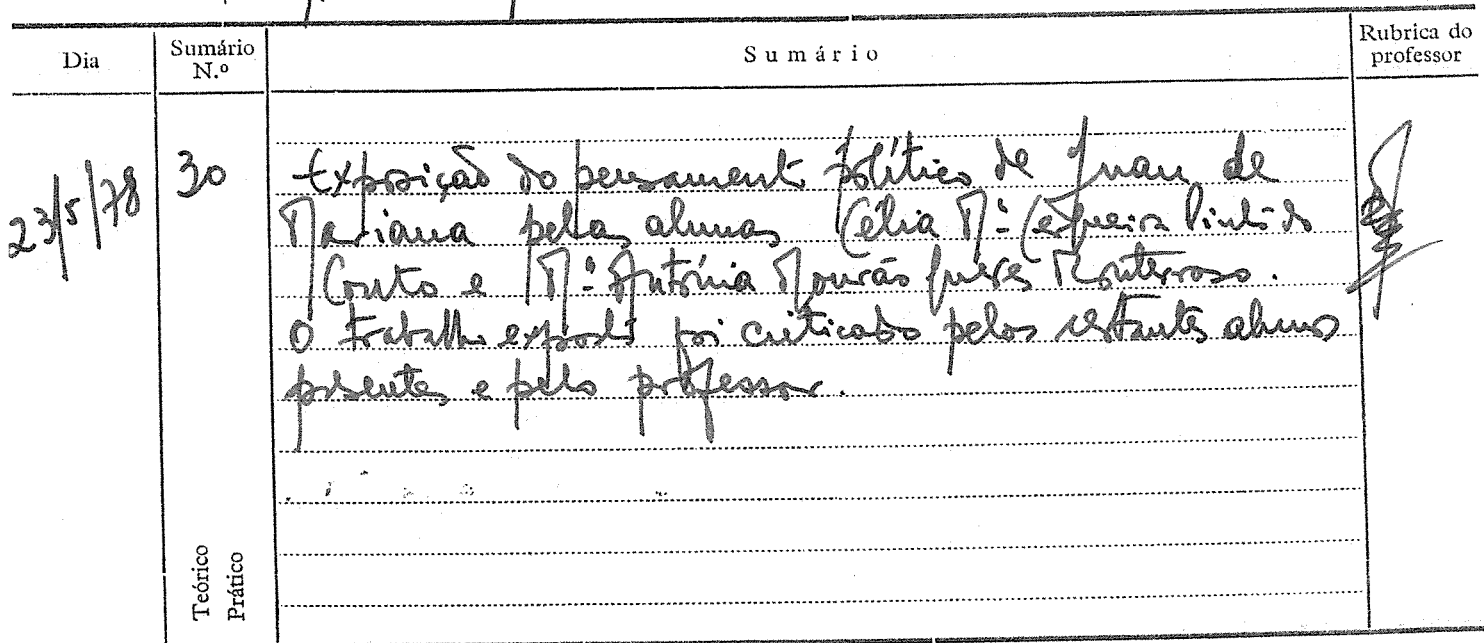 Dia
Sumário N.º
Sumário
Rubrica do professor
23/5/78
30
Exposição do pensamento político de Juan de
Mariana pelas alunas Célia Mª Cerqueira Pinto do
Couto e Mª Antónia Mourão Monterroso.
O trabalho exposto foi criticado pelos restantes alunos
presentes e pelo professor.
Teórico
Prático